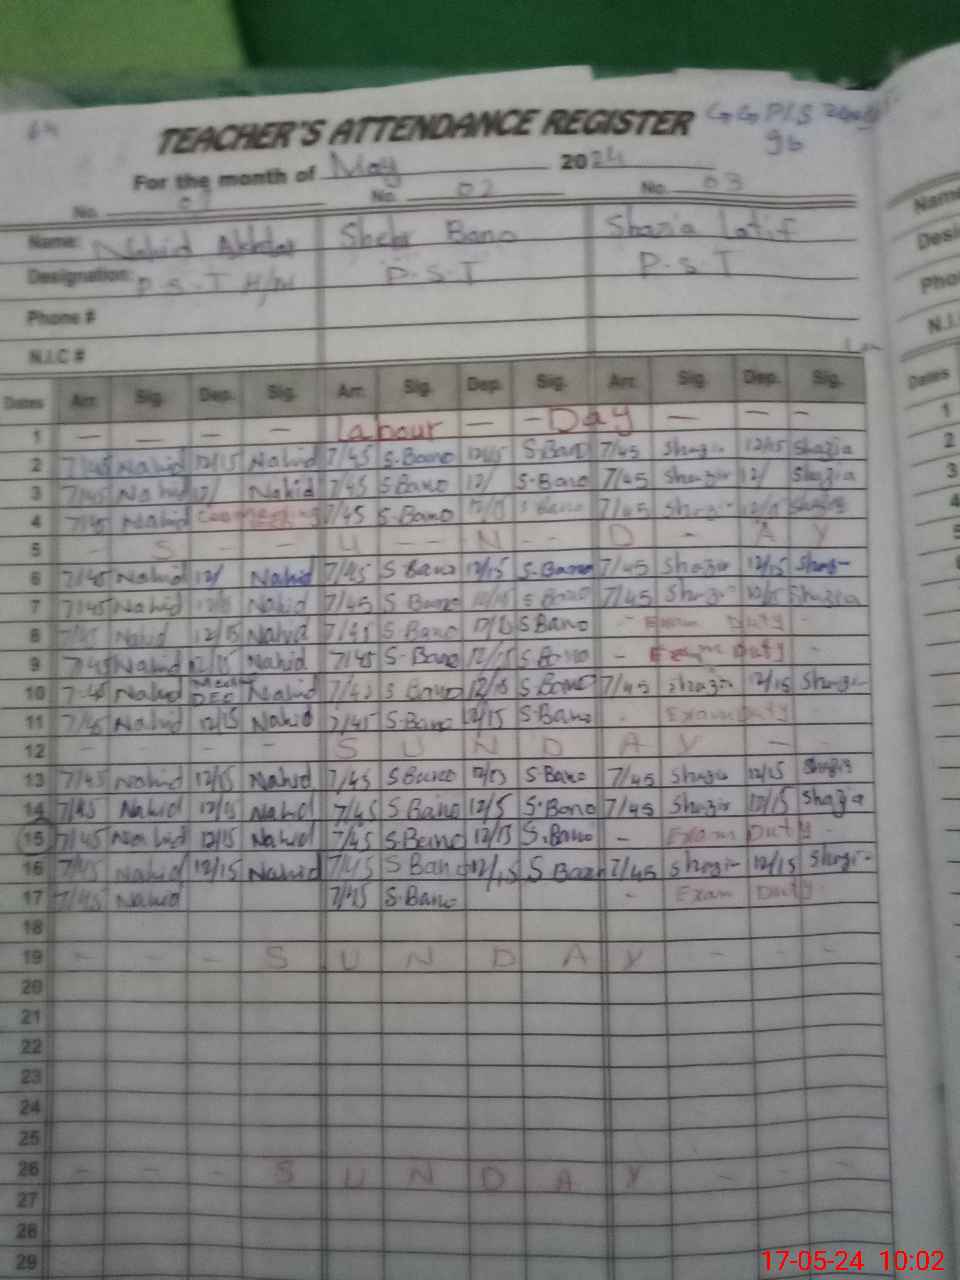 TEACHER'S ATTENDANCE REGISTER
For the month of May 2024
No. 01 No. 02 No. 03
Name: Nahid Akhtar Shehr Bano Shazia Latif
Designation: P.S.T H/M P.S.T P.S.T
Phone #
N.I.C #
Dates Arr. Sig. Dep. Sig. Arr. Sig. Dep. Sig. Arr. Sig. Dep. Sig.
1 — — — — Labour — — Day — — —
2 7/45 Nahid 12/15 Nahid 7/45 S.Bano 12/15 S.Bano 7/45 Shazia 12/15 Shazia
3 7/45 Nahid 12/ Nahid 7/45 S.Bano 12/ S.Bano 7/45 Shazia 12/ Shazia
4 7/45 Nahid 7/45 S.Bano 12/15 S.Bano 7/45 Shazia 12/15 Shazia
5 - S - - U - - N - - D - A Y
6 7/45 Nahid 12/ Nahid 7/45 S Bano 12/15 S.Bano 7/45 Shazia 12/15 Shaz-
7 7/45 Nahid 12/15 Nahid 7/45 S Bano 12/15 S Bano 7/45 Shazia 12/15 Shazia
8 7/45 Nahid 12/15 Nahid 7/45 S.Bano 12/15 S Bano - Exam Duty -
9 7/45 Nahid 12/15 Nahid 7/45 S.Bano 12/15 S Bano - Exam Duty -
10 7/45 Nahid DEO Nahid 7/45 S Bano 12/15 S Bano 7/45 Shazia 12/15 Shazia
11 7/45 Nahid 12/15 Nahid 7/45 S.Bano 12/15 S.Bano - Exam Duty
12 - - - - S U N D A Y - -
13 7/45 Nahid 12/15 Nahid 7/45 S Bano 12/15 S.Bano 7/45 Shazia 12/15 Shazia
14 7/45 Nahid 12/15 Nahid 7/45 S.Bano 12/5 S.Bano 7/45 Shazia 12/15 Shazia
15 7/45 Nahid 12/15 Nahid 7/45 S.Bano 12/15 S.Bano - Exam Duty -
16 7/45 Nahid 12/15 Nahid 7/45 S Bano 12/15 S Bano 7/45 Shazia 12/15 Shazia
17 7/45 Nahid 7/45 S.Bano - Exam Duty
18
19 - - - S U N D A Y - - -
20
21
22
23
24
25
26 - - - S U N D A Y - - -
27
28
29
17-05-24 10:02